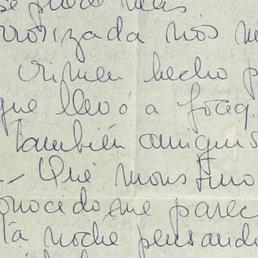 se puede más
rrorizada nos me
crimen hecho p
que llevó a Joaq
también amigus
- Qué monstruo
onocido me parec
la noche pensando